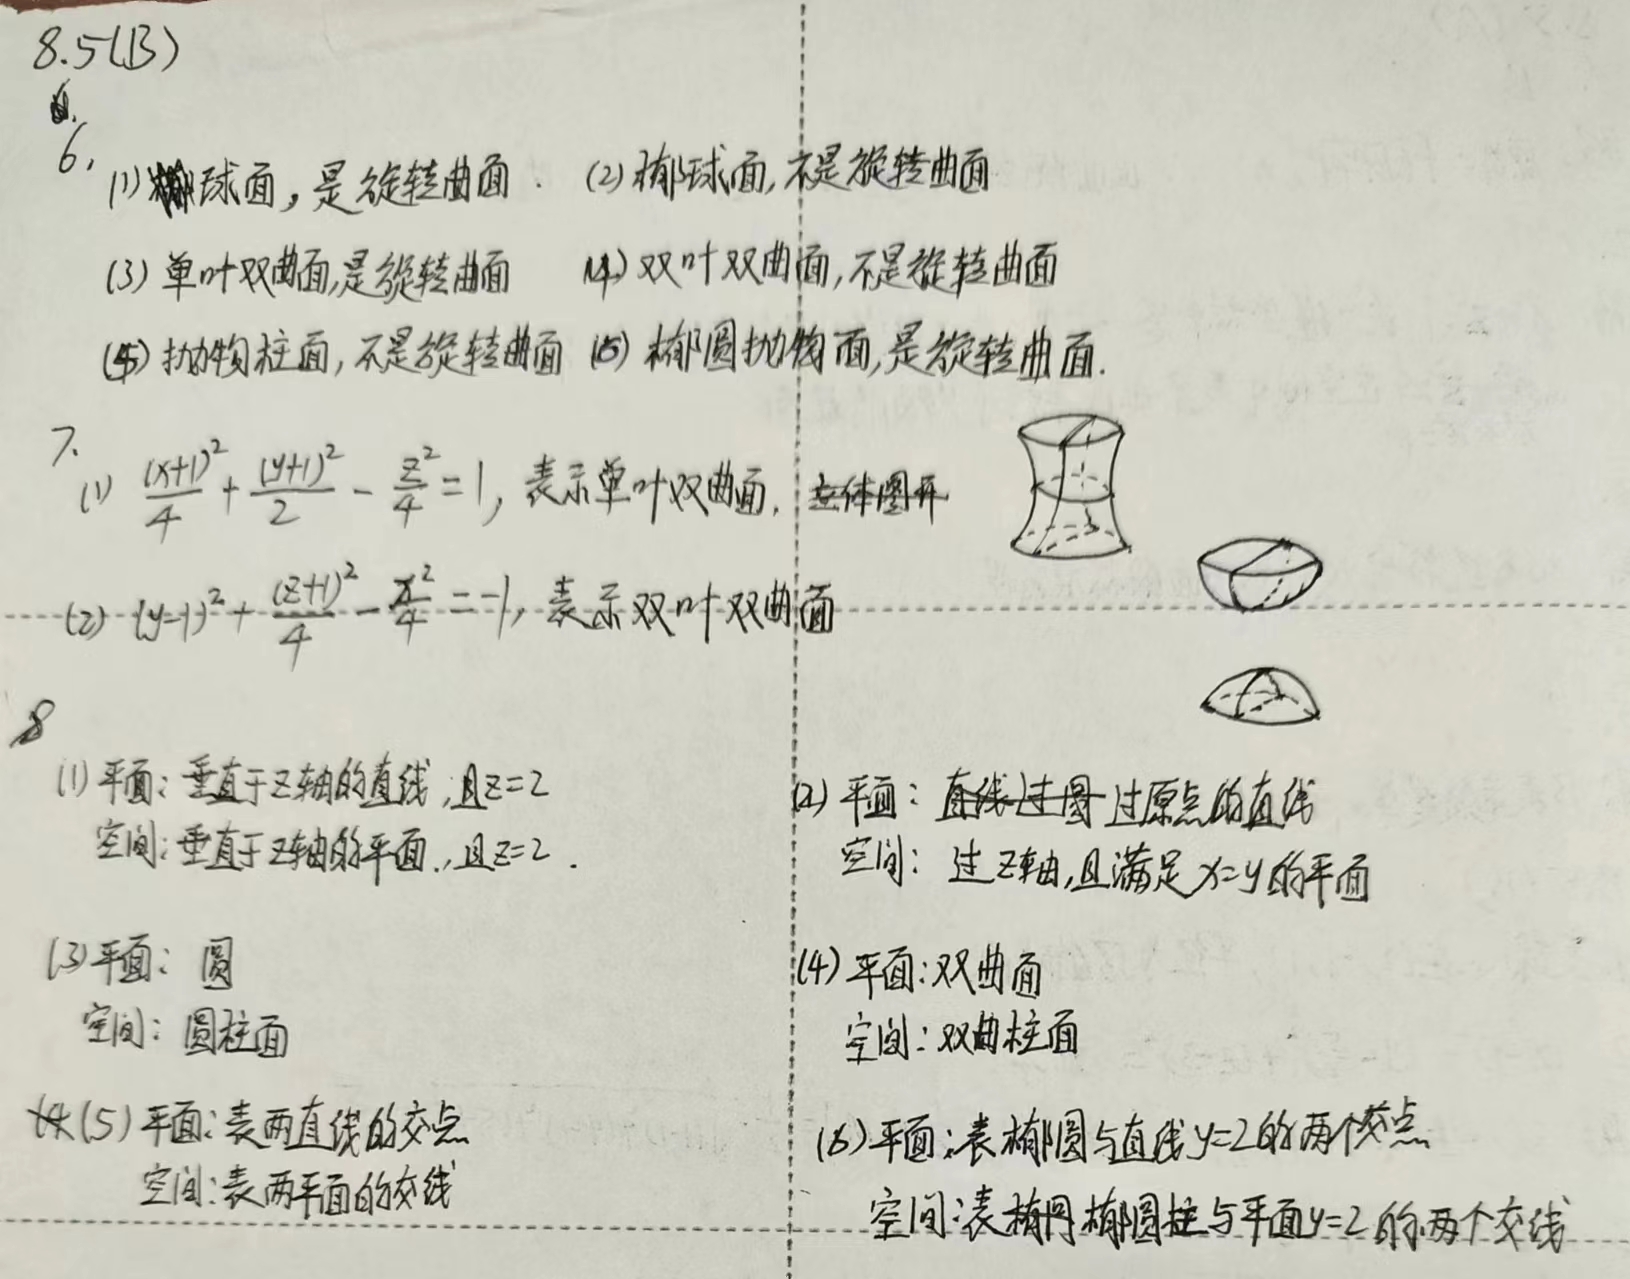 8.5(B)
6.
(1) 球面，是旋转曲面. (2) 椭球面,不是旋转曲面
(3) 单叶双曲面,是旋转曲面 (4) 双叶双曲面,不是旋转曲面
(5) 抛物柱面,不是旋转曲面 (6) 椭圆抛物面,是旋转曲面.
7.
(1) (x+1)²/4 + (y+1)²/2 - z²/4 = 1, 表示单叶双曲面. 立体图形
(2) (y-1)² + (z+1)²/4 - x²/4 = -1, 表示双叶双曲面
8
(1) 平面: 垂直于z轴的直线,且z=2
空间: 垂直于z轴的平面.,且z=2.
(2) 平面: 直线过圆 过原点的直线
空间: 过z轴,且满足x=y的平面
(3) 平面: 圆
空间: 圆柱面
(4) 平面: 双曲面
空间: 双曲柱面
(5) 平面: 表两直线的交点
空间: 表两平面的交线
(6) 平面: 表椭圆与直线y=2的两个交点
空间: 表椭圆柱与平面y=2的两个交线